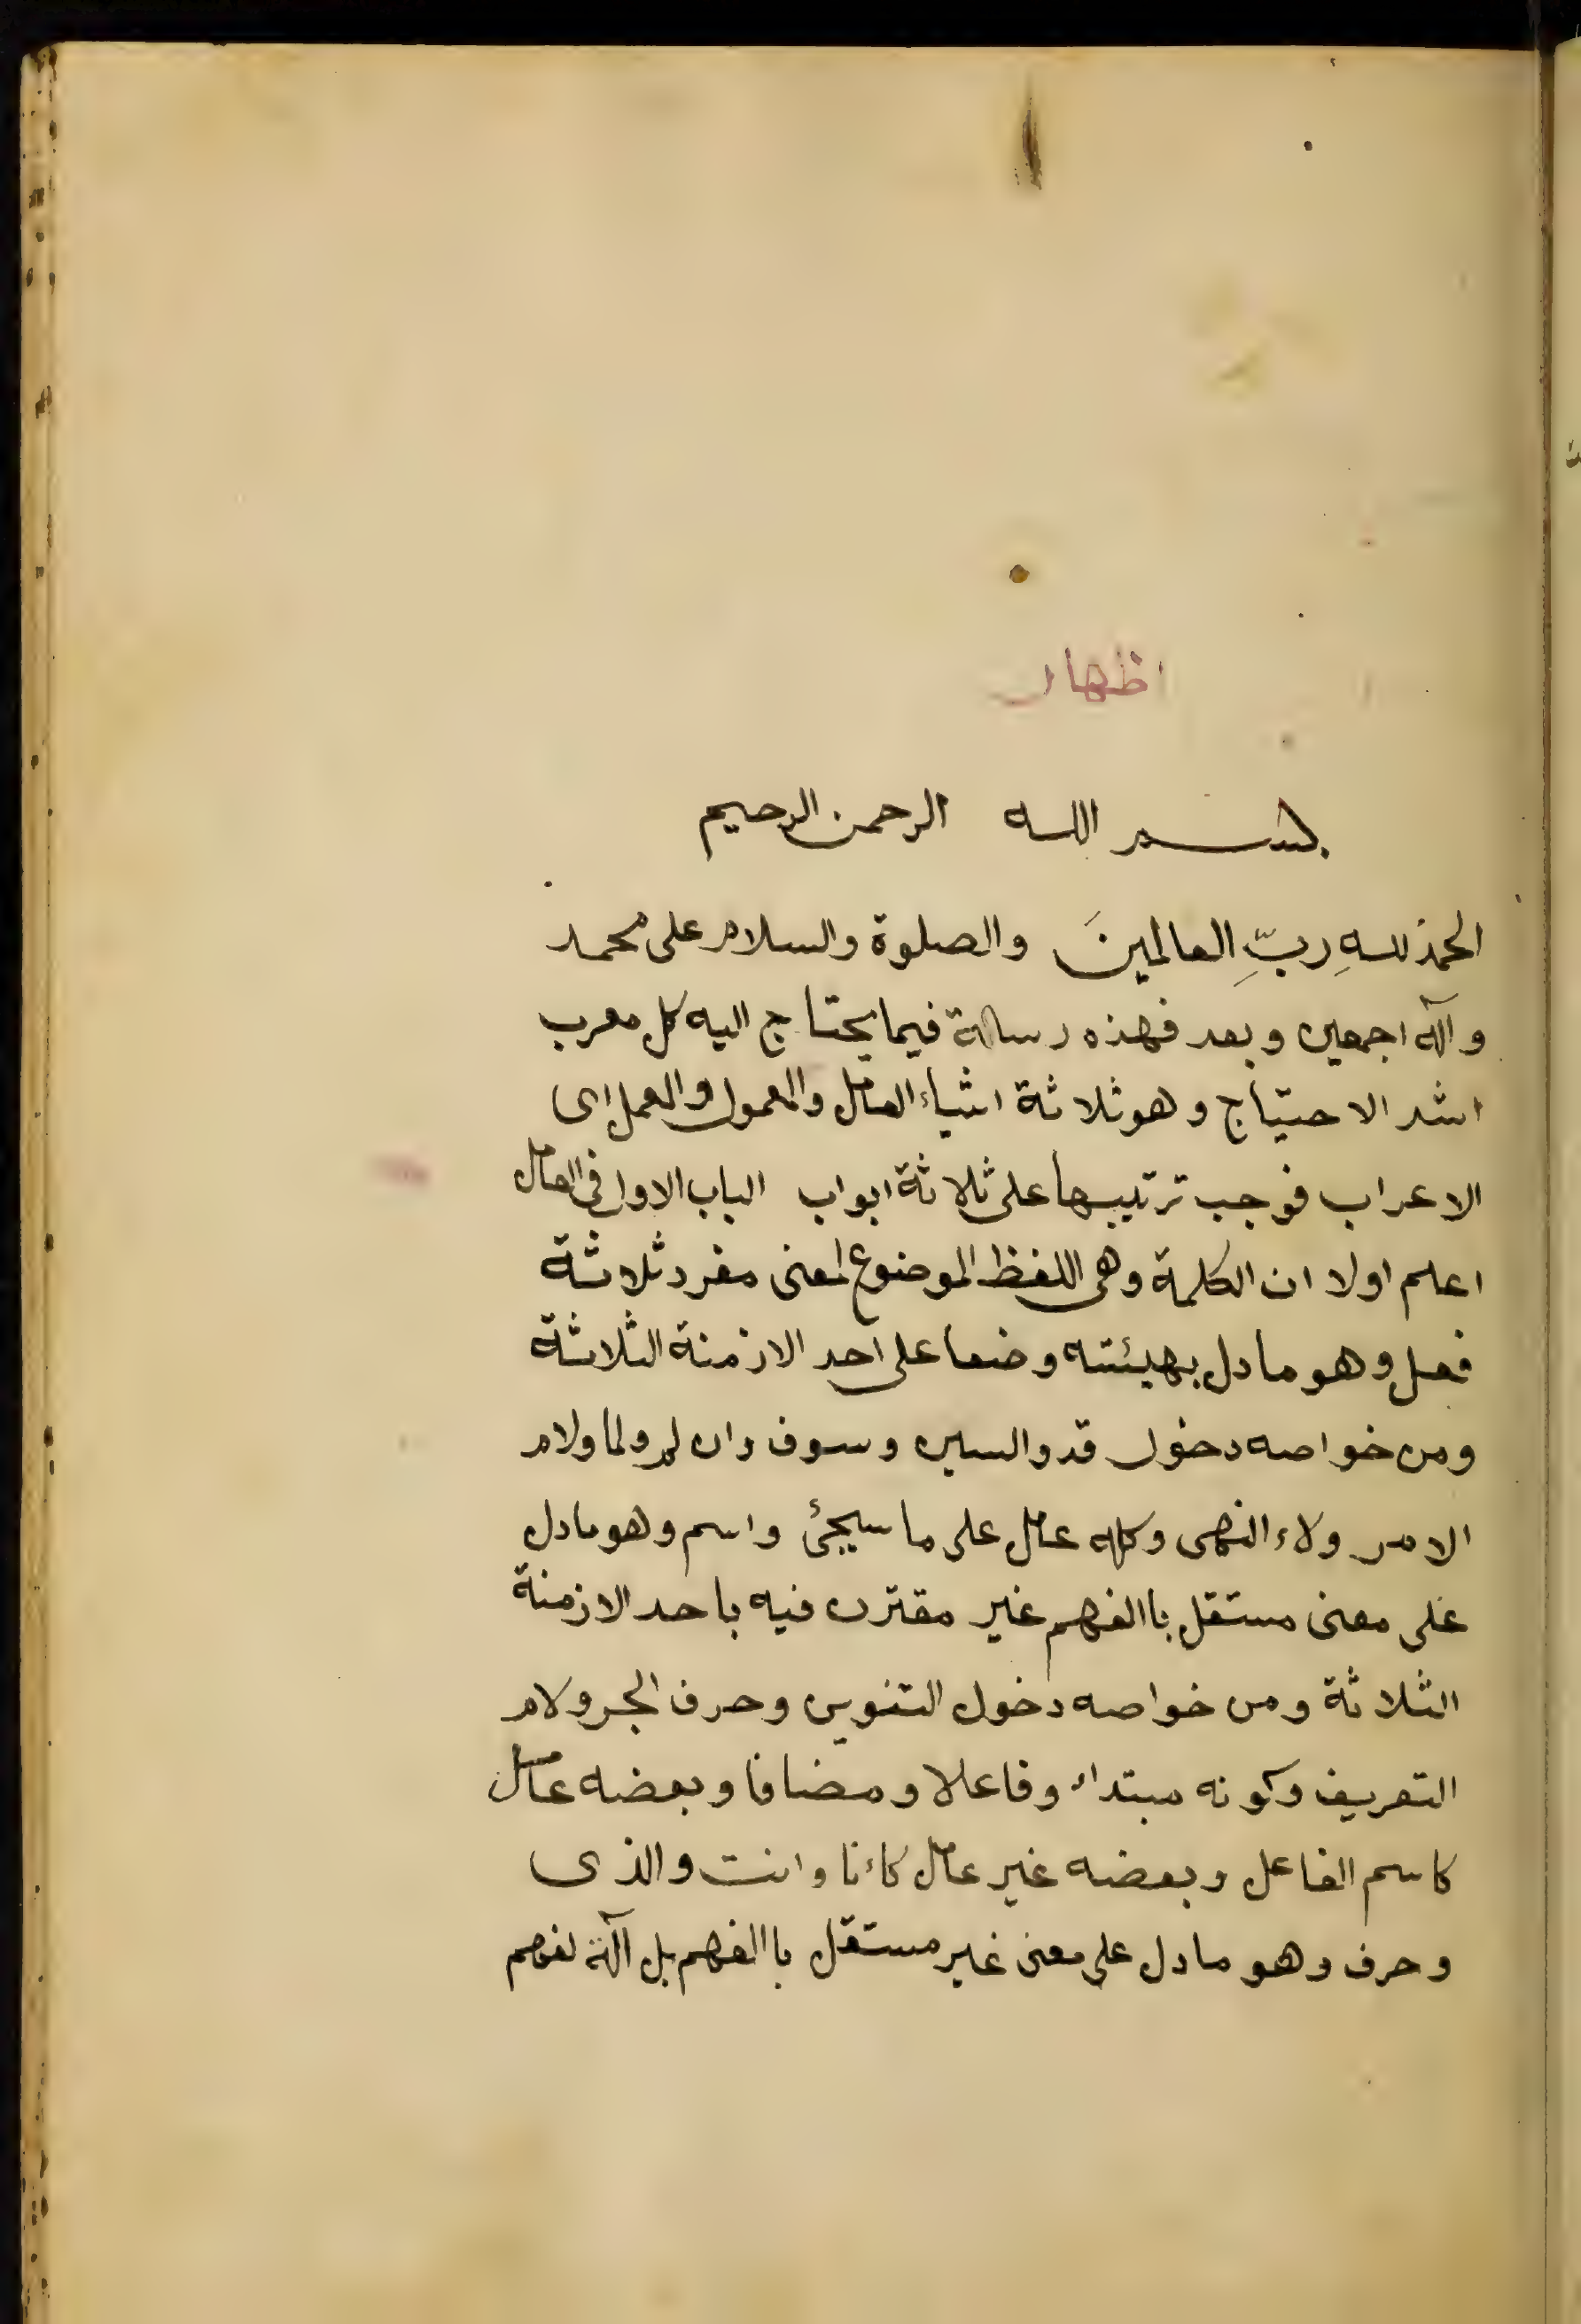 اظهار
بسم الله الرحمن الرحيم
الحمد للهِ ربِّ العالمينَ والصلوة والسلام على محمد
وآله اجمعين وبعد فهذه رسالة فيما يحتاج اليه كل معرب
اشد الاحتياج وهو ثلاثة اشياء العامل والمعمول والعمل اى
الاعراب فوجب ترتيبها على ثلاثة ابواب الباب الاول فى العامل
اعلم اولا ان الكلمة وهى اللفظ الموضوع لمعنى مفرد ثلاثة
فعل وهو ما دل بهيئته وضعا على احد الازمنة الثلاثة
ومن خواصه دخول قد والسين وسوف وان لم ولما ولام
الامر ولاء النهى وكله عامل على ما سيجئ واسم وهو ما دل
على معنى مستقل باالفهم غير مقترن فيه باحد الازمنة
الثلاثة ومن خواصه دخول التنوين وحرف الجر ولام
التعريف وكونه مبتداء وفاعلا ومضافا وبعضه عامل
كاسم الفاعل وبعضه غير عامل كاءنا وانت والذى
وحرف وهو ما دل على معنى غير مستقل باالفهم بل آلة لفهم